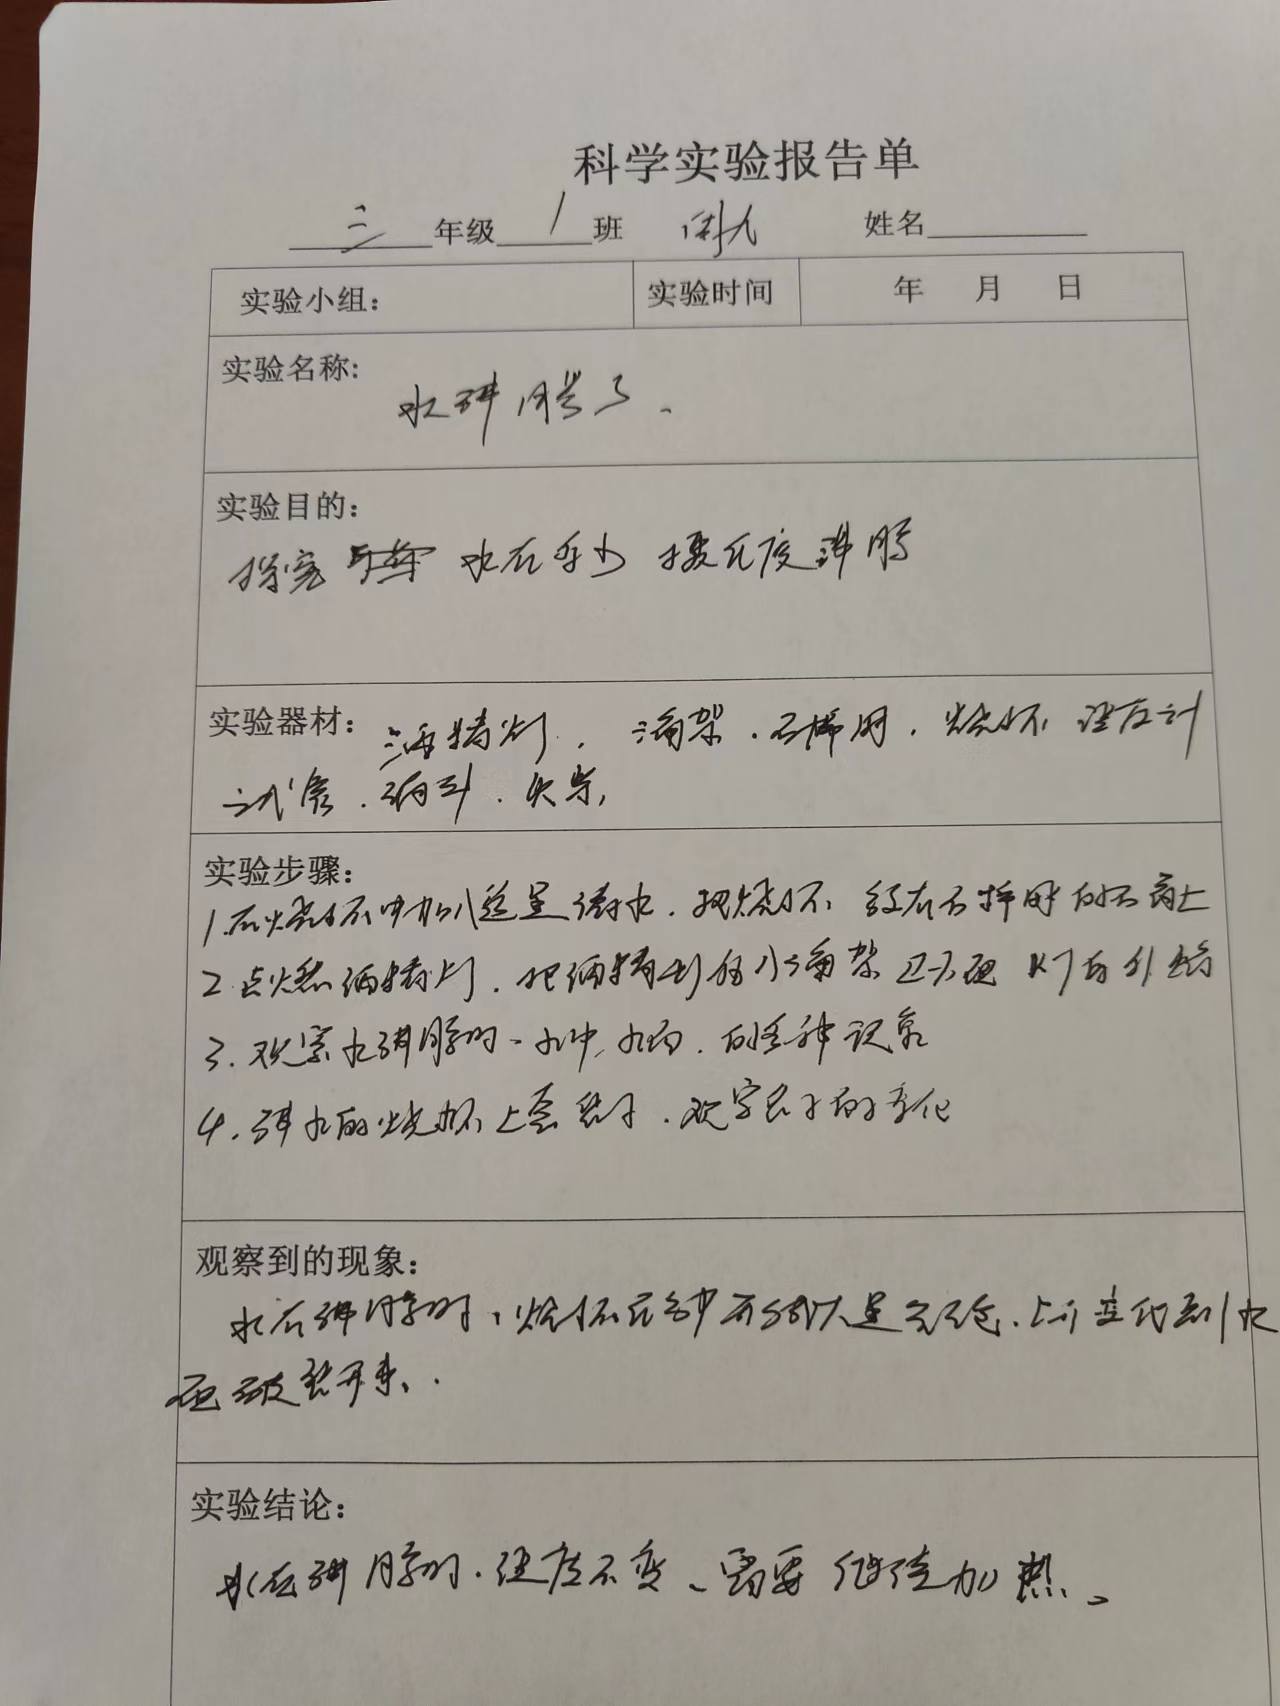 科学实验报告单
三年级 1 班 姓名
实验小组： 实验时间 年 月 日
实验名称：
水沸腾了。
实验目的：
探究 水在多少摄氏度沸腾
实验器材： 酒精灯，三角架、石棉网，烧杯 温度计
试管、酒精灯、火柴，
实验步骤：
1.在烧杯中加入适量清水，把烧杯 放在石棉网的 上
2.点燃酒精灯，把酒精灯 三角架
3.观察水沸腾时、水中，水面，的各种现象
4.沸水的烧杯上 ，观察 的变化
观察到的现象：
水在沸腾时，烧杯 大量气泡，上升 到水
面破裂开来。
实验结论：
水在沸腾时，温度不变、需要继续加热。